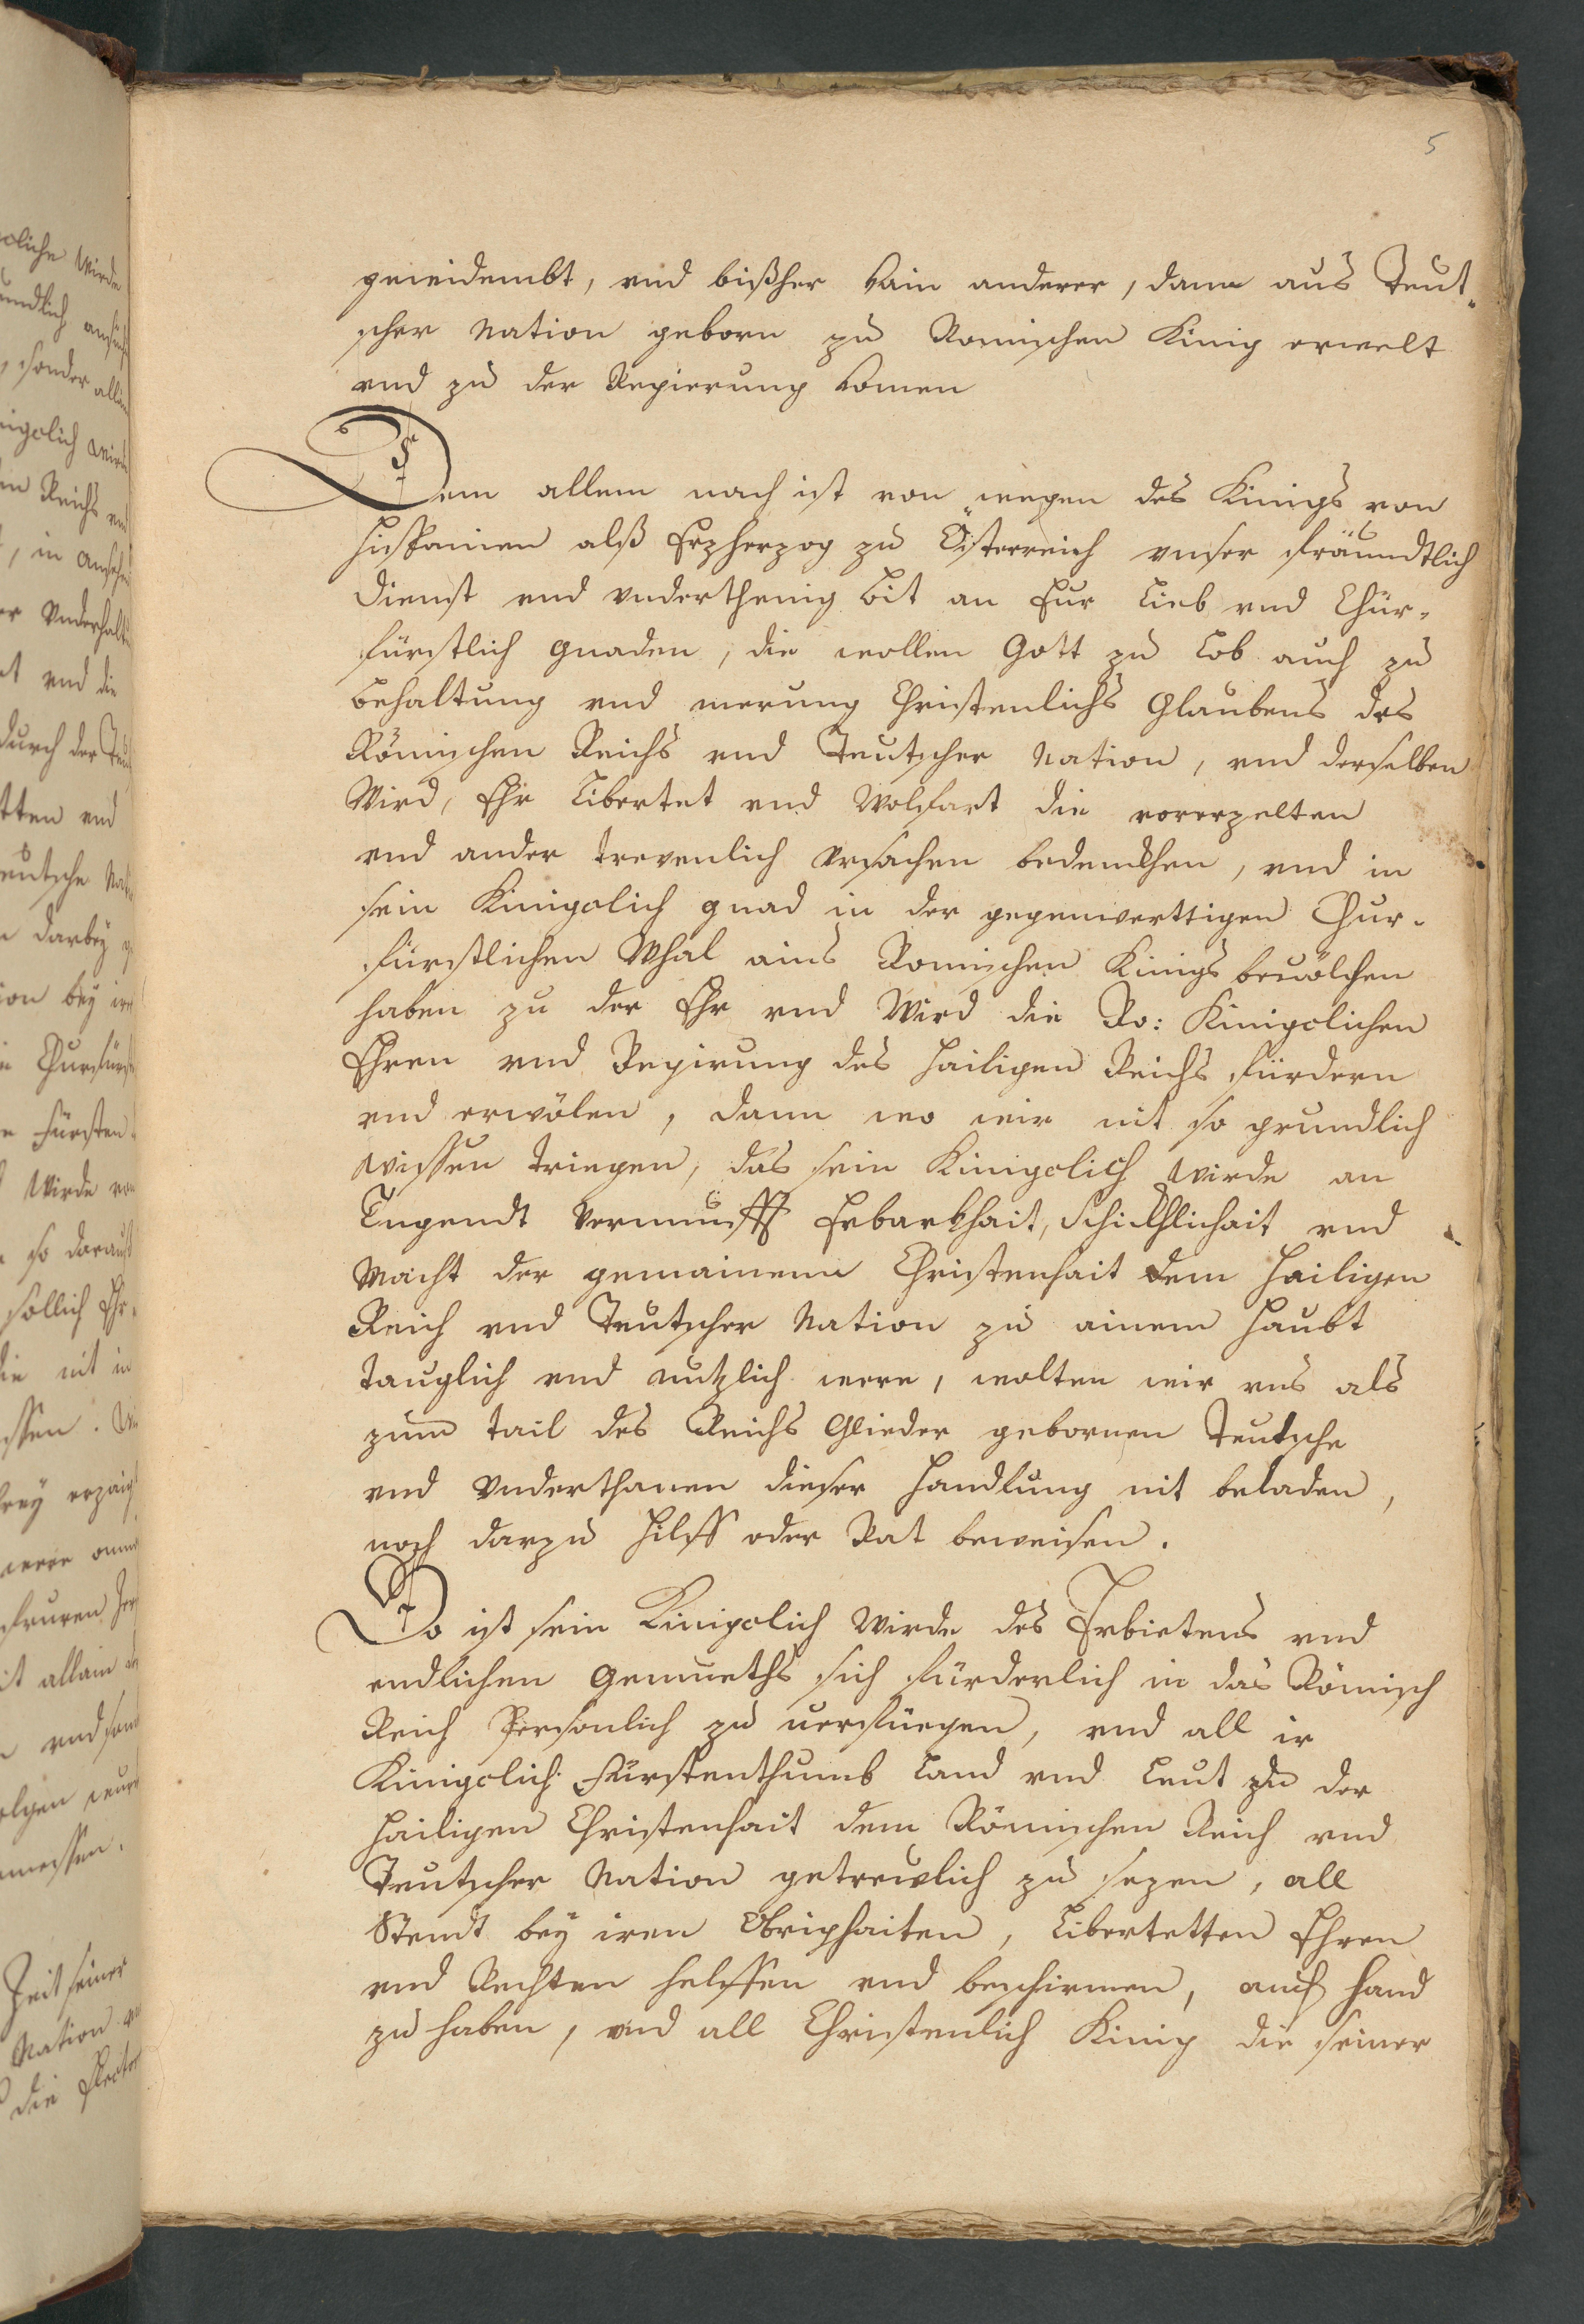 5
geweidembt, vnd bißher kain anderer, dann aus Teut-
scher Nation geborn zu Romischen Kinig erwelt
vnd zu der Regierung komen
Dem allem nach ist von wegen des Kinigs von
Hispanien alß Erzherzog zu Österreich vnser fräundtlich
dienst vnd vnderthenig bit an Eur Lieb vnd Chür-
fürstlich gnaden, die wollen Gott zu Lob auch zu
behaltung vnd merung Christenlichs Glaubens des
Römischen Reichs vnd Teutscher Nation, vnd derselben
Wird, Ehr Libertet vnd Wolfart die vorerzelten
vnd ander trevenlich vrsachen bedenckhen, vnd in
sein Kinigclich gnad in der gegenwerttigen Chur-
fürstlichen Whal ains Romischen Kinigs beuölchen
haben zu der Ehr vnd Wird die Ro: Kinigclichen
Ehren vnd Regirung des Hailigen Reichs fürdern
vnd erwölen, dann wo wir nit so grundlich
wissen triegen, das sein Kinigclich wirde an
Tugendt Vernunfft Erbarkhait, Schickhlichait vnd
Macht der gemainem Christenhait dem Hailigen
Reich vnd Teutscher Nation zu ainem Haubt
tauglich vnd nutzlich were, wolten wir vns als
zum tail des Reichs Glieder gebornen Teutsche
vnd Vnderthanen dieser Handlung nit beladen,
noch darzu Hilff oder Rat beweisen.
So ist sein Kinigclich Wirde des Erbietens vnd
endlichen Gemueths sich fürderlich in das Römisch
Reich Personlich zu uerfüegen, vnd all ir
Kinigclich Fürstenthumb Land vnd Leut zu der
Hailigen Christenhait dem Römischen Reich vnd
Teutscher Nation getrewlich zu sezen, all
Stendt bey iren Obrighaiten, Libertetten Ehren
vnd Rechten helffen vnd beschirmen, auch hand
zu haben, vnd all Christenlich Kinig die seiner